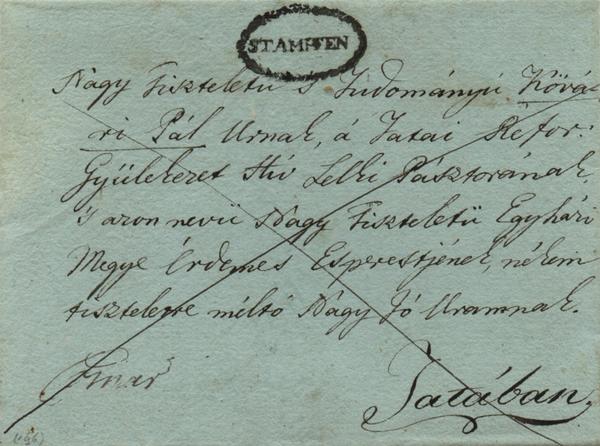 STAMPFEN
Nagy Tiszteletü 's Tudományú Kővá-
ri Pál Urnak, á Tatai Refor:
Gyülekezet Hív Lelki Pásztorának,
's azon nevü Nagy Tiszteletü Egyházi
Megye Érdemes Esperestjének, nékem
tiszteletre méltó Nagy Jó Uramnak.
Tatában.